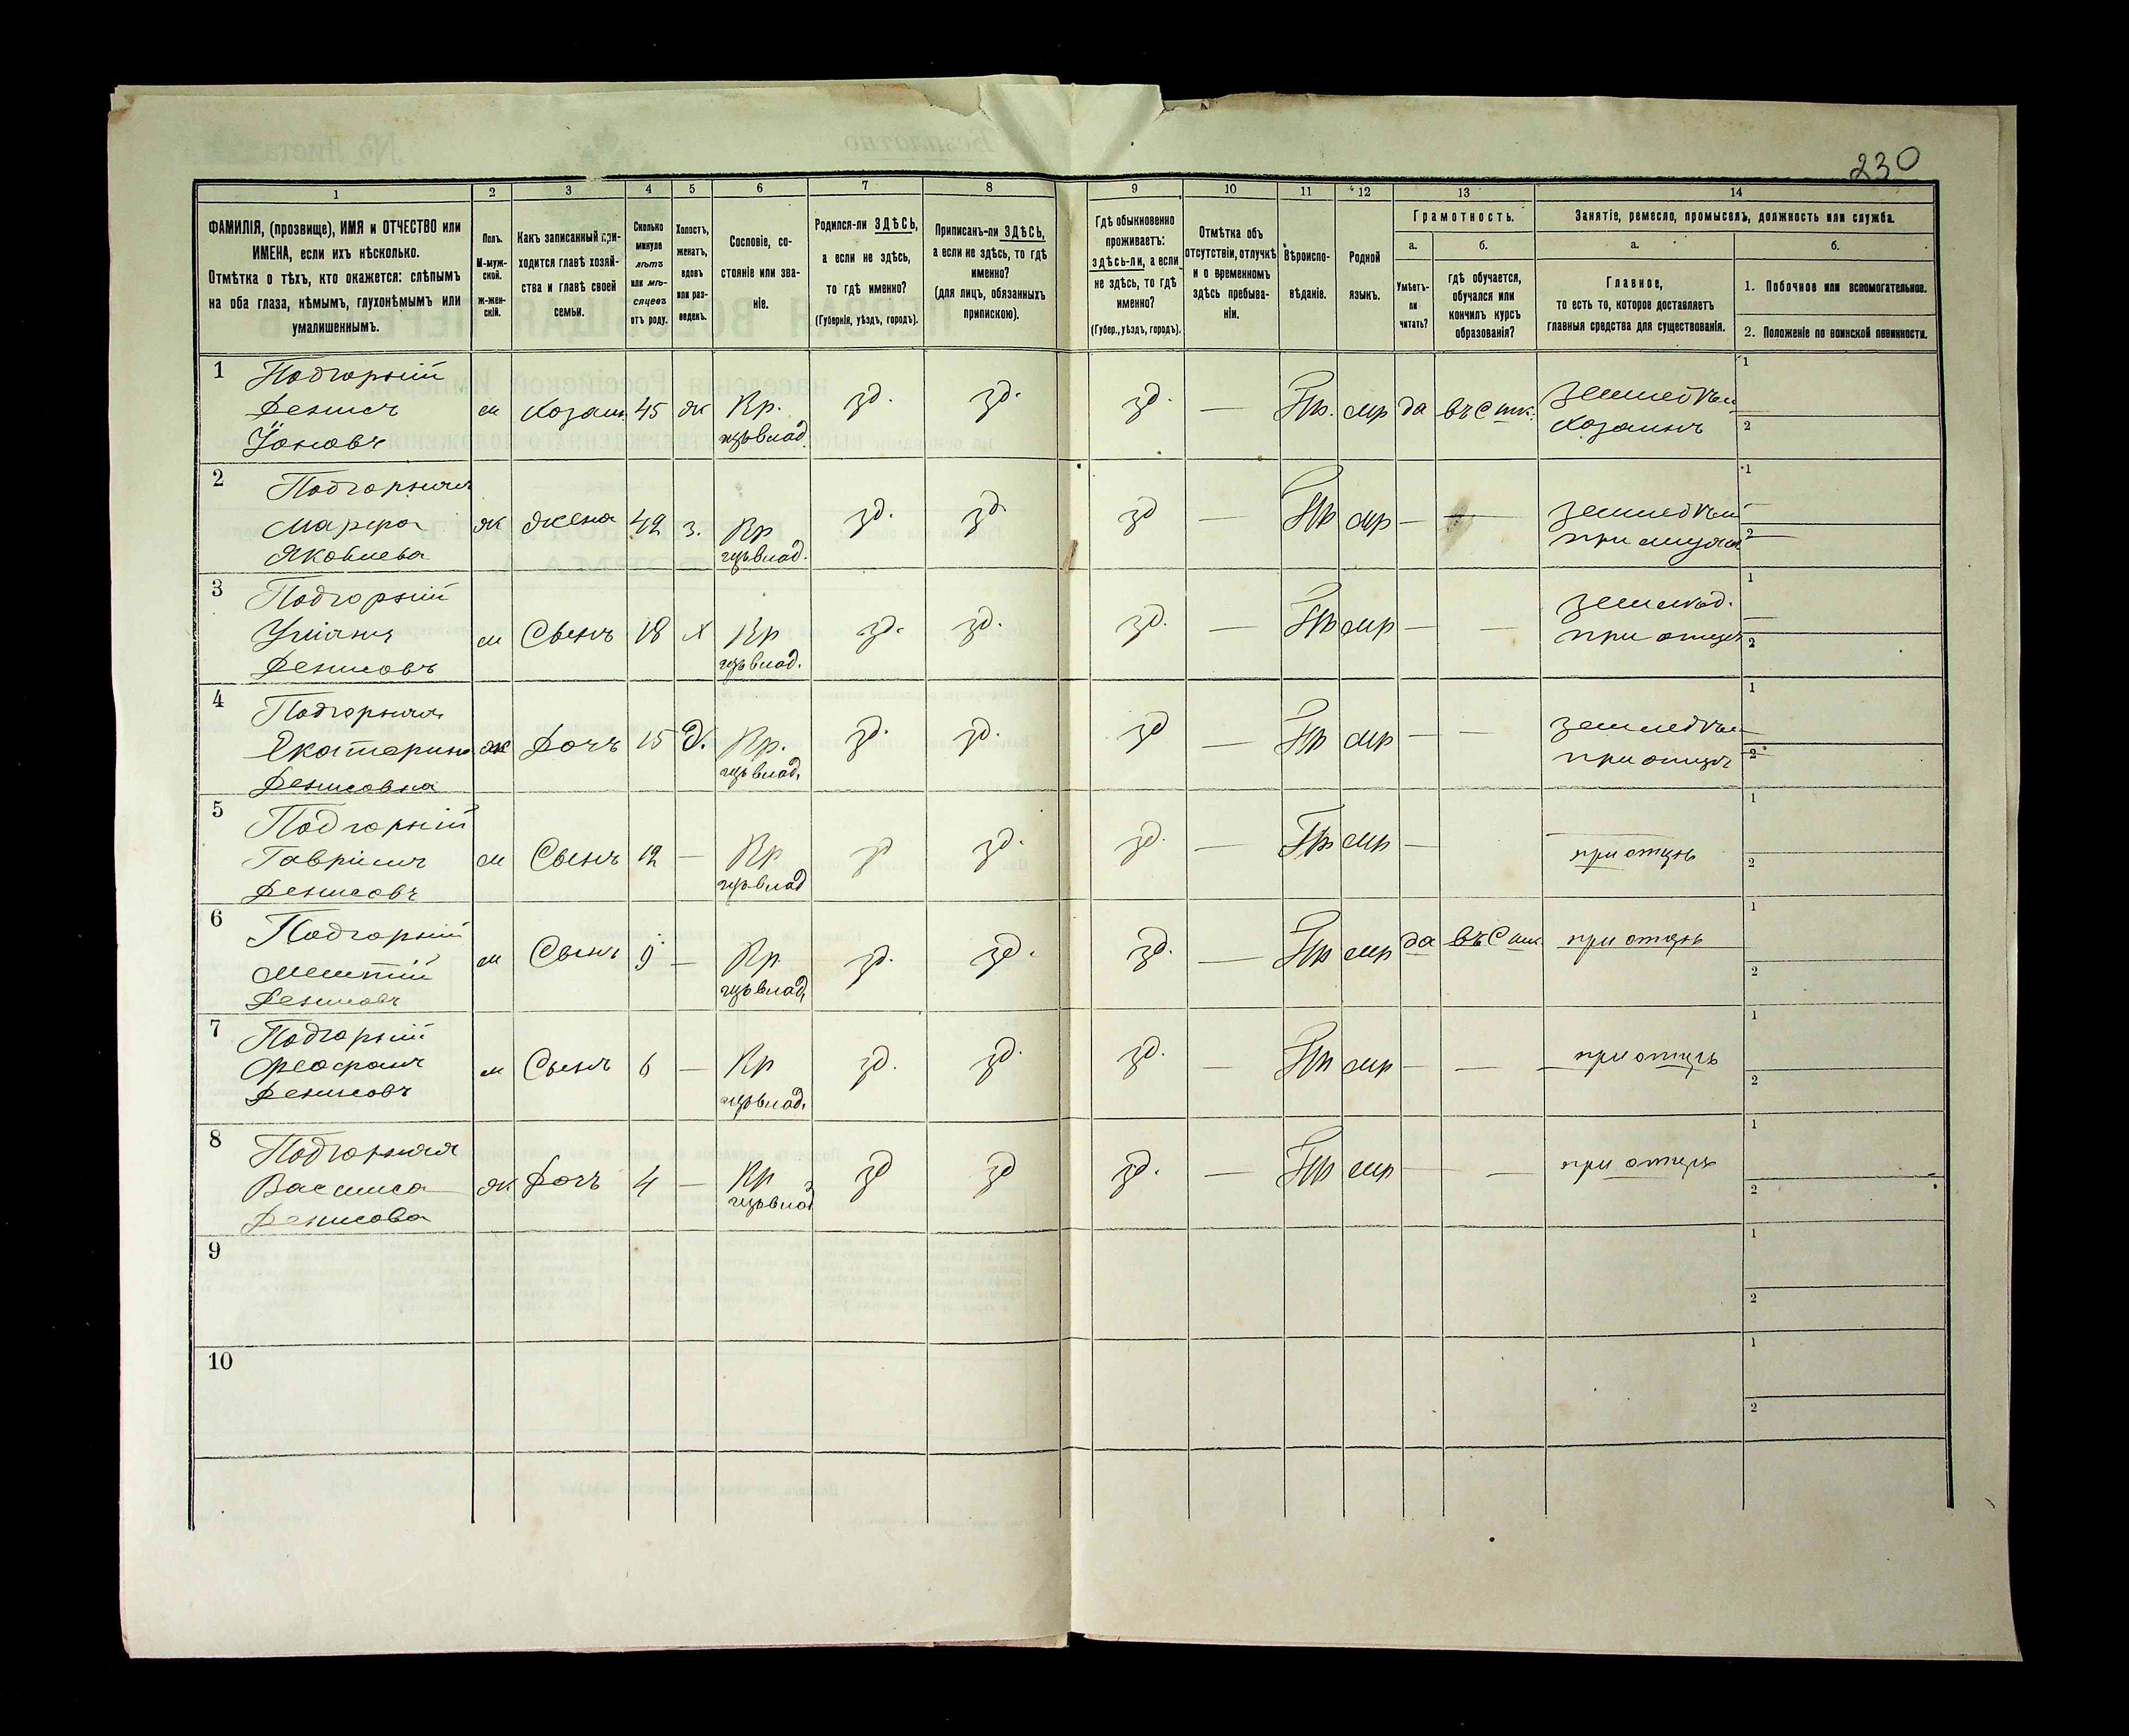 230
1 2 3 4 5 6 7 8 9 10 11 12 13 14
ФАМИЛІЯ, (прозвище), ИМЯ и ОТЧЕСТВО или
ИМЕНА, если ихъ нѣсколько.
Отмѣтка о тѣхъ, кто окажется: слѣпымъ
на оба глаза, нѣмымъ, глухонѣмымъ или
умалишеннымъ.
Полъ.
М-муж-
ской.
Ж-жен-
скій.
Какъ записанный при-
ходится главѣ хозяй-
ства и главѣ своей
семьи.
Сколько
минуло
лѣтъ
или мѣ-
сяцевъ
отъ роду.
Холостъ,
женатъ,
вдовъ
или раз-
веденъ.
Сословіе, со-
стояніе или зва-
ніе.
Родился-ли ЗДѢСЬ,
а если не здѣсь,
то гдѣ именно?
(Губернія, уѣздъ, городъ).
Приписанъ-ли ЗДѢСЬ,
а если не здѣсь, то гдѣ
именно?
(для лицъ, обязанныхъ
припискою).
Гдѣ обыкновенно
проживаетъ:
здѣсь-ли, а если
не здѣсь, то гдѣ
именно?
(Губер., уѣздъ, городъ).
Отмѣтка объ
отсутствіи, отлучкѣ
и о временномъ
здѣсь пребыва-
ніи.
Вѣроиспо-
вѣданіе.
Родной
языкъ.
Грамотность.
а.
Умѣетъ-
ли
читать?
б.
гдѣ обучается,
обучался или
кончилъ курсъ
образованія?
Занятіе, ремесло, промыселъ, должность или служба.
а.
Главное,
то есть то, которое доставляетъ
главныя средства для существованія.
б.
1. Побочное или вспомогательное.
2. Положеніе по воинской повинности.
1 Подгорній
Денисъ м 45 ж Кр. зд. зд. зд. — мр да
Хозяинъ
1
2
2 Подгорняя
Марфа ж жена 42 з. Кр зд. зд. зд — мр —
Яковлева
1
2
3 Подгорній
м Сынъ 18 х Кр зд. зд. зд. — мр — —
Денисовъ
при отцѣ
1
2
4 Подгорняя
Екатерина ж Дочъ 15 д. Кр. зд. зд. зд — мр — —
Денисовна
при отцѣ
1
2
5 Подгорній
Гавріилъ м Сынъ 12 — Кр зд зд. зд. — мр — при отцѣ
Денисовъ
1
2
6 Подгорній
м Сынъ 9 — Кр зд. зд. зд. — мр да при отцѣ
Денисовъ
1
2
7 Подгорній
Феофанъ м Сынъ 6 — Кр зд. зд. зд. — мр — — при отцѣ
Денисовъ
1
2
8 Подгорняя
Василиса ж Дочъ 4 — Кр зд зд зд. — мр — — при отцѣ
Денисова
1
2
9
1
2
10
1
2